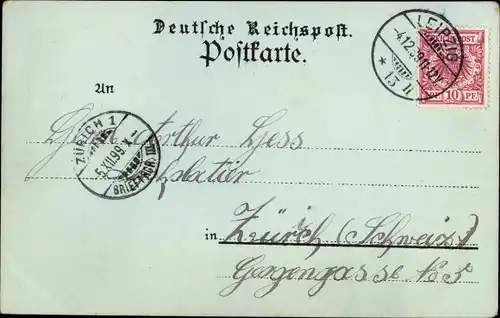 Deutsche Reichspost.
Postkarte.
LEIPZIG
4.12.99.11-12V
* 13 II
REICHSPOST
10 PF.
An
Arthur Hess
ZÜRICH 1
5.XII.99.X-
BRIEFTRGR. III
in Zürich (Schweiz)
Gergengasse No 5